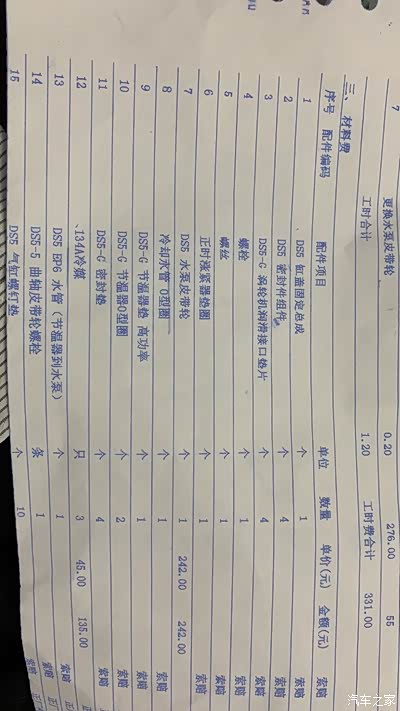 7 更换水泵皮带轮 0.20 276.00 55
工时合计 1.20 工时费合计 331.00
三、材料费
序号 配件编码 配件项目 单位 数量 单价(元) 金额(元)
1 、DS5 缸盖固定总成 个 1 索赔
2 DS5 密封件组件 个 4 索赔
3 DS5-G 涡轮机润滑接口垫片 个 4 索赔
4 螺栓 个 1 索赔
5 螺丝 个 1 索赔
6 正时涨紧器垫圈 个 1 索赔
7 DS5 水泵皮带轮 个 1 242.00 242.00 索赔
8 冷却水管 O型圈 个 1 索赔
9 DS5-G 节温器垫 高功率 个 1 索赔
10 DS5-G 节温器O型圈 个 2 索赔
11 DS5-G 密封垫 个 4 索赔
12 、134A冷媒 只 3 45.00 135.00 索赔
13 DS5 EP6 水管（节温器到水泵） 个 1 索赔
14 DS5-5 曲轴皮带轮螺栓 条 1 索赔
15 DS5 气缸螺钉垫 个 10 索赔
汽车之家